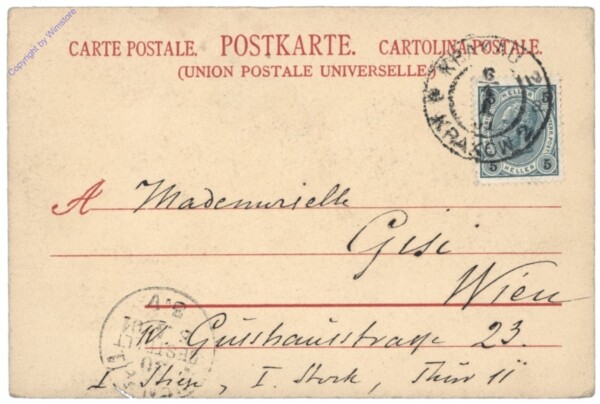 Copyright by Winstore
CARTE POSTALE. POSTKARTE. CARTOLINA POSTALE.
(UNION POSTALE UNIVERSELLE
KRAKAU 2
KRAKÓW 2
5 HELLER 5
5 HELLER 5
A Mademoiselle
Gisi
Wien
IV Gusshausstrasse 23.
I Stiege, I. Stock, Thür 11
BESTELLT